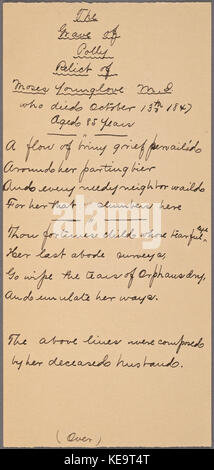 The
Grave of
Polly
Relict of
Moses Younglove M.D
who died October 13th 1847
Aged 85 years
A flow of briny grief prevailed
Around her parting bier
And every needy neighbor wailed
For her that slumbers here
Thou fortuneless child whose tearful eye
Her last abode surveys,
Go wipe the tears of Orphans dry,
And emulate her ways.
The above lines were composed
by her deceased husband.
(Over)
alamy
Image ID: KE9T4T
www.alamy.com